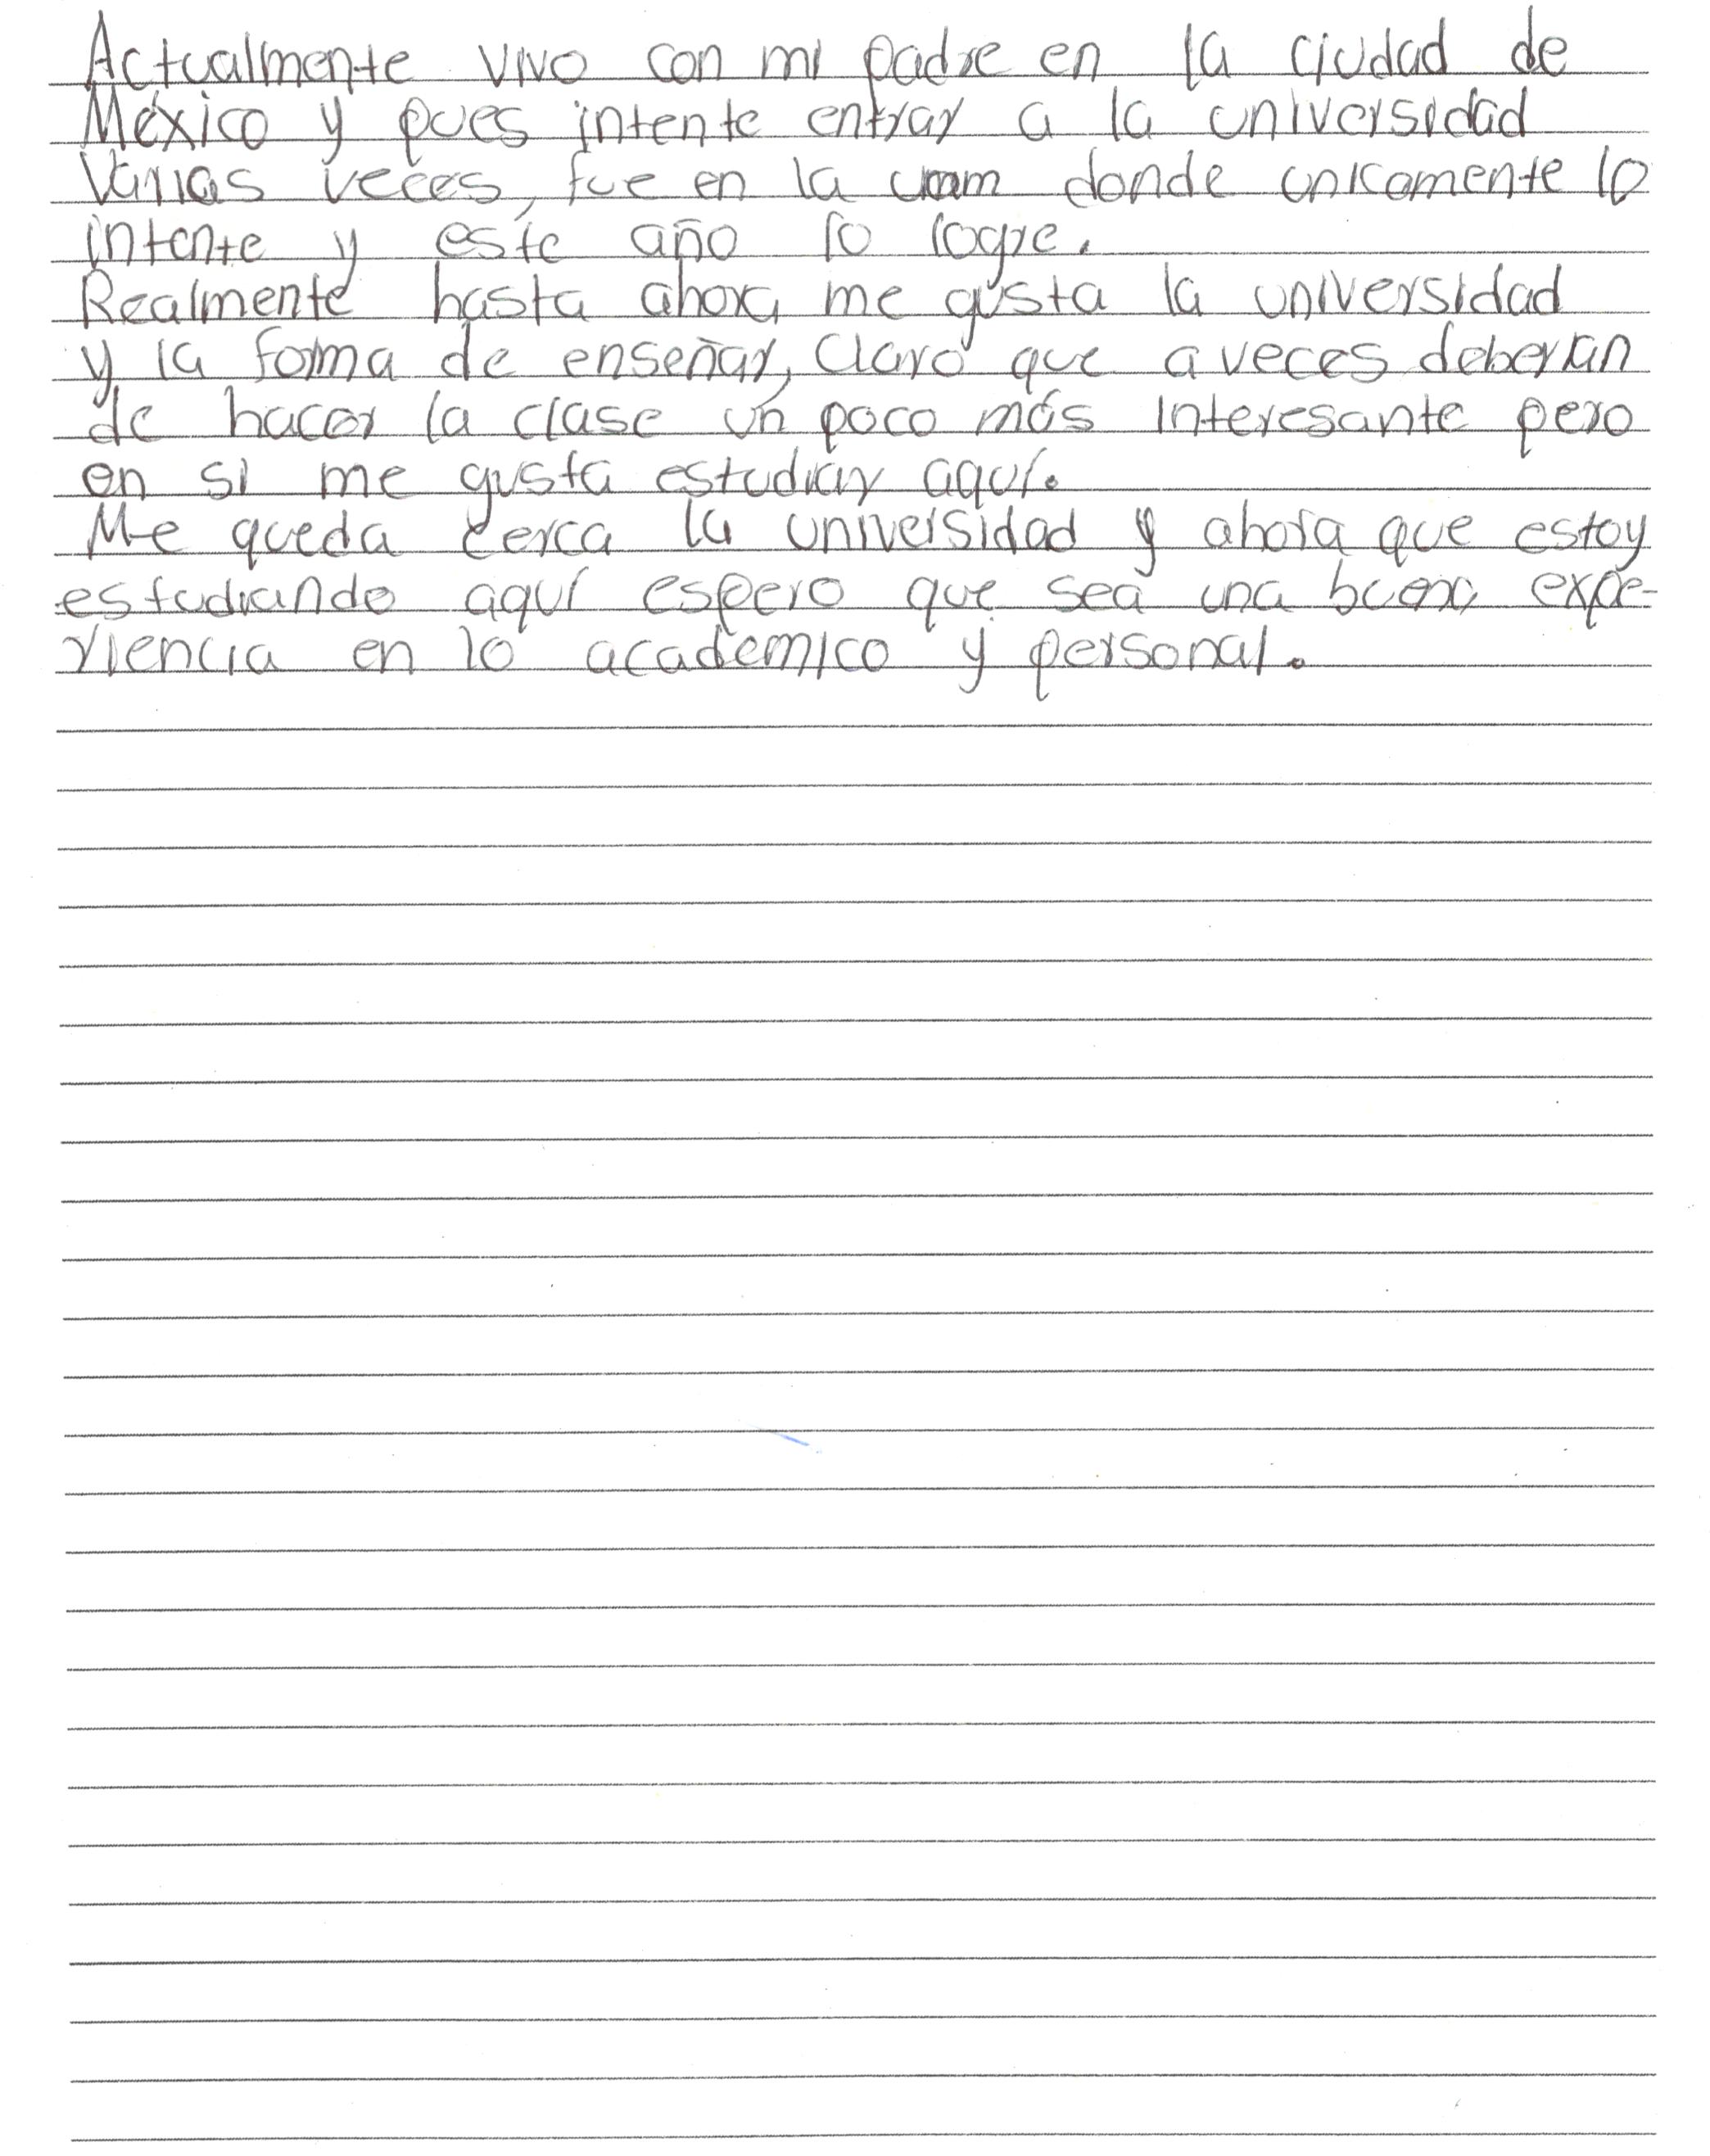 Actualmente vivo con mi padre en la ciudad de
México y pues intente entrar a la universidad
varias veces, fue en la unam donde unicamente lo
intente y este año lo logre.
Realmente hasta ahora me gusta la universidad
y la forma de enseñar, claro que a veces deberian
de hacer la clase un poco más interesante pero
en si me gusta estudiar aquí.
Me queda cerca la universidad y ahora que estoy
estudiando aquí espero que sea una buena expe-
riencia en lo academico y personal.